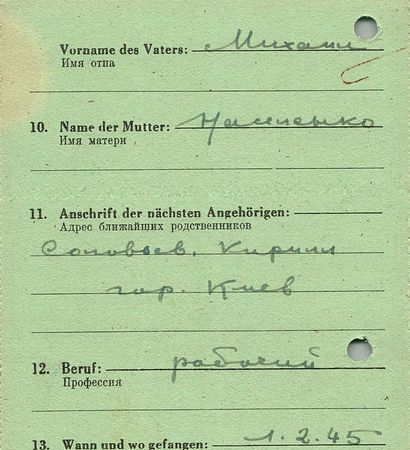 Vorname des Vaters: Михаил
Имя отца
10. Name der Mutter:
Имя матери
11. Anschrift der nächsten Angehörigen:
Адрес ближайших родственников
Соловьев, Кирилл
гор. Киев
12. Beruf: рабочий
Профессия
13. Wann und wo gefangen: 1.2.45